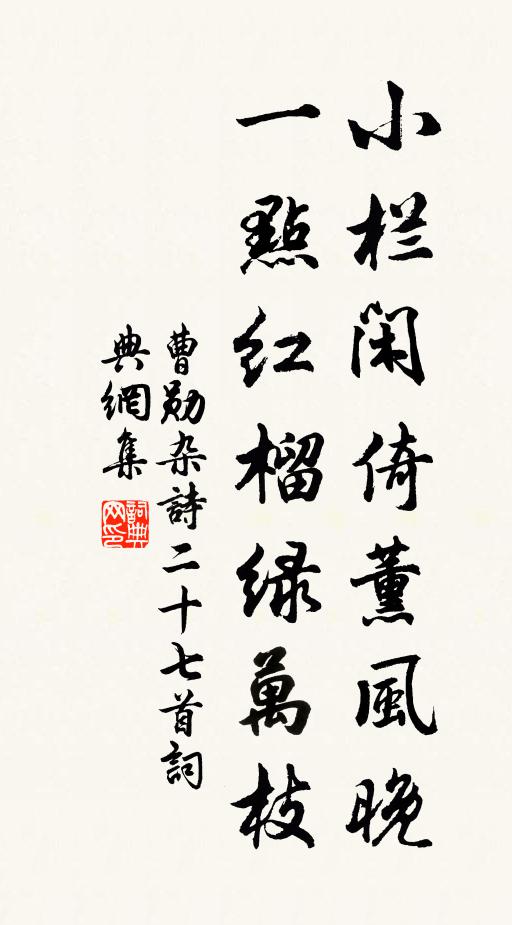 小栏闲倚薰風晚
一點红榴绿萬枝
曹勋杂詩二十七首詞
典網集
詞典
网印